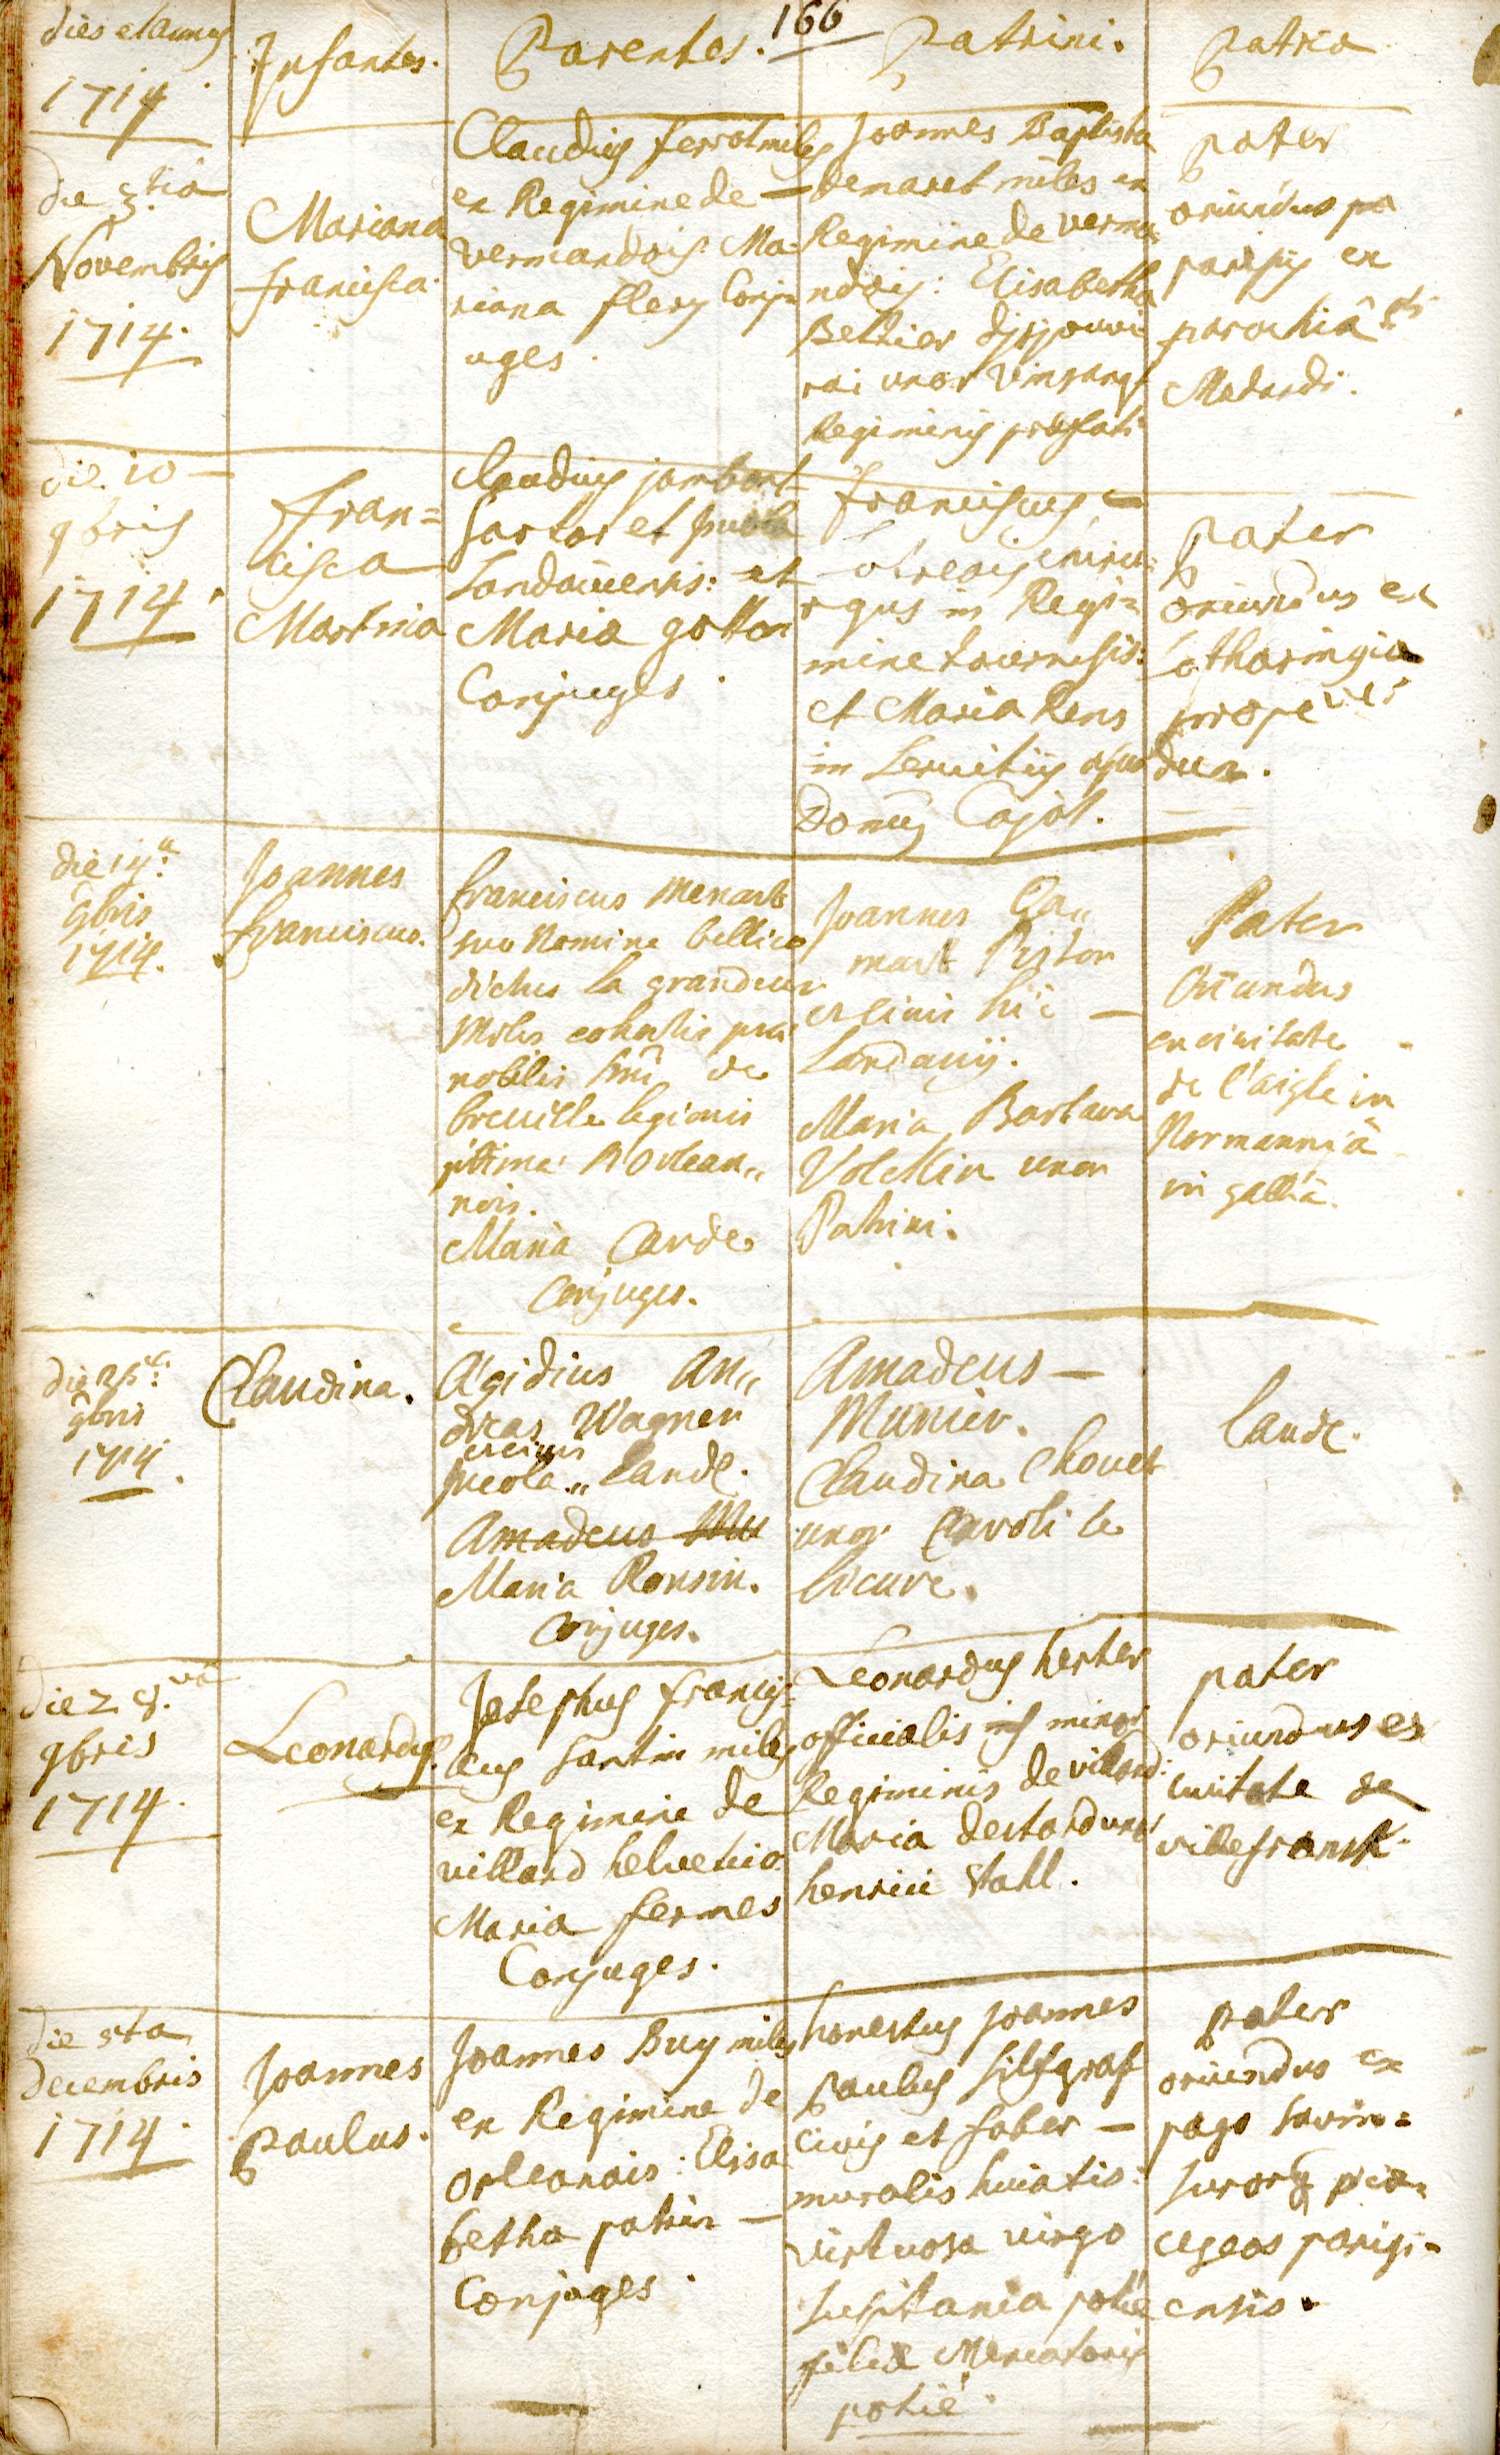 166
dies et annus
1714
Infantes.
Parentes.
Patrini.
Patria
die 3.tia
Novembris
1714.
Mariana
francisca.
Claudius ferrot miles
ex Regimine de —
vermandois: Ma-
riana flery Conju
uges.
Joannes Baptista
demaret miles ex
Regimine de verma
ndois: Elisabetha
Bettier
uxor
Regiminis præfati
pater
oriundus
parisiis ex
parochiâ sti
Medardi.
die 10 —
9bris
1714.
fran=
cisca
Martina
Claudius jambart
sartor et
Landaviensis: et
Maria gotton
Conjuges.
franciscus —
chiru=
rgus in Regi=
mine
et Maria Rens
in servitiis apud
Cajot.
pater
oriundus ex
Lotharingia
prope ver
dun.
die 14a
9bris
1714.
Joannes
franciscus.
franciscus Menart
suo Nomine bellico
dictus la grandeur
Miles cohortis præ
nobilis Dni de
breuille legionis
Orlean„
nois.
Maria Carde
Conjuges.
Joannes Ga„
mart Pistor
et Civis hic —
Landavii.
Maria Barbara
Volckin uxor
Patrini.
Pater
Oriundus
ex civitate
de l'aigle in
Normanniâ
in galliâ.
die 25a:
9bris
1714.
Claudina.
Ægidius An„
dreas Wagner
et civis
incola„ Land.
Amadeus Mu
Maria Ronsin.
Conjuges.
Amadeus —
Munier.
Claudina Chouet
uxor Caroli le
Cicure.
Land.
die 28.va
9bris
1714.
Leonardus.
Josephus francis=
cus santin miles
ex Regimine de
villard helvetico
Maria fermes
Conjuges.
Leonardus herter
officialis minor
Regiminis de villard:
Maria destord uxor
henrici stahl.
pater
oriundus ex
civitate de
villefransk.
die 5ta
decembris
1714.
Joannes
Paulus.
Joannes Buy miles
ex Regimine de
orleanois: Elisa
betha patrin —
Conjuges.
honestus joannes
paulus silfgraf
civis et faber —
muralis huiatis:
virtuosa virgo
potié
filia Mercatoris
potié.
pater
oriundus ex
pago savin=
diœ=
ceseos parisi=
ensis.